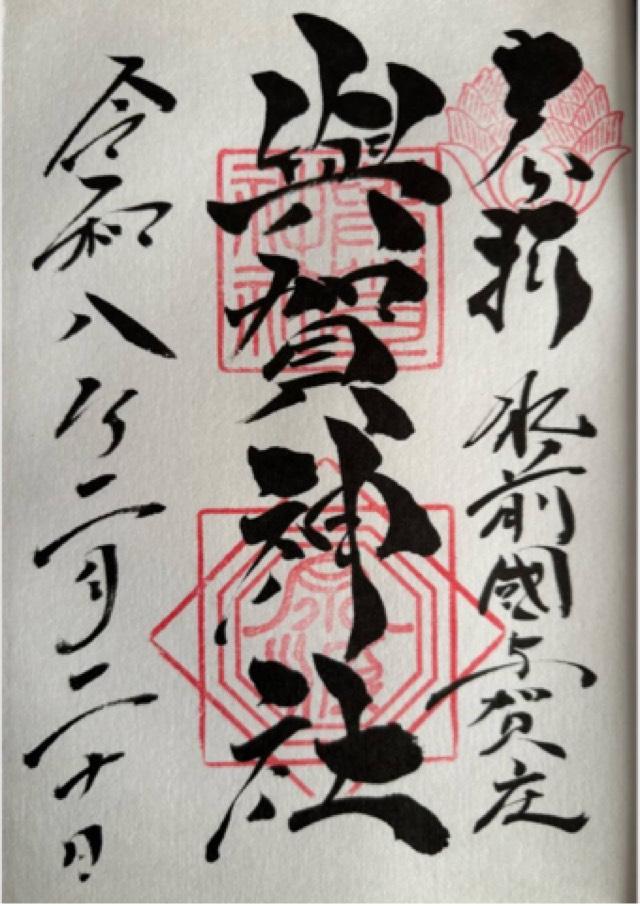 奉拝 肥前國与賀庄
與賀神社
令和八年二月二十日